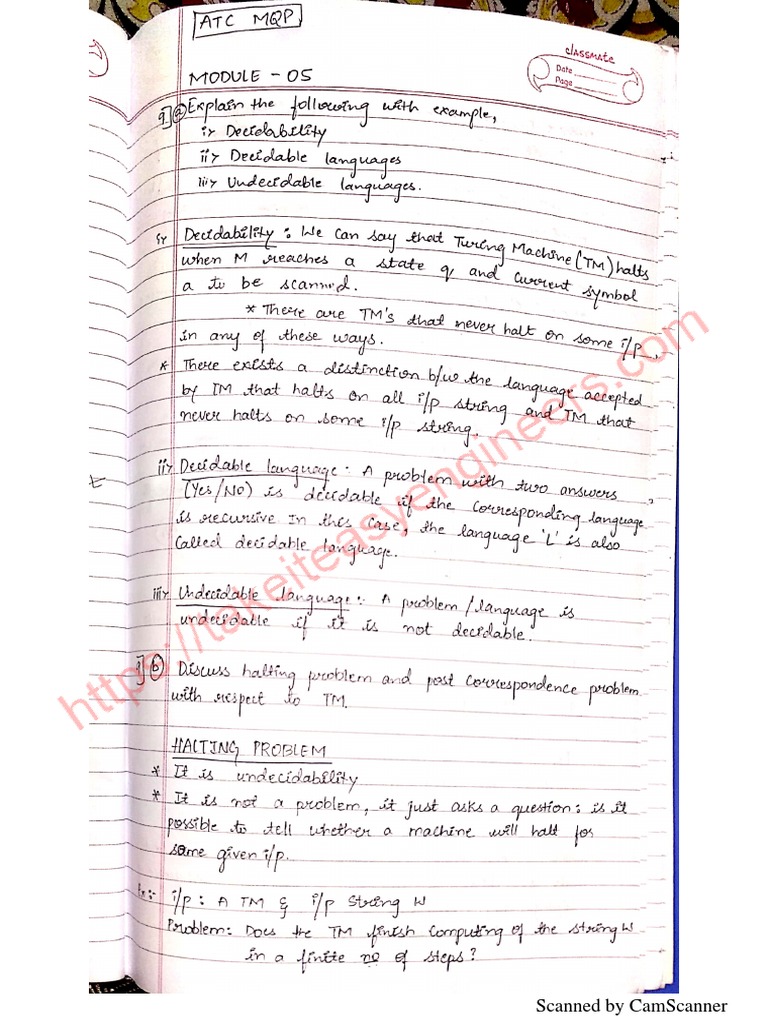 ATC MQP
classmate
Date
Page
MODULE - 05
9] a Explain the following with example,
i> Decidability
ii> Decidable languages
iii> Undecidable languages.
i> Decidability : We can say that Turing Machine (TM) halts
when M reaches a state q, and current symbol
a to be scanned.
* There are TM's that never halt on some i/p,
in any of these ways.
* There exists a distinction b/w the language accepted
by TM that halts on all i/p string and TM that
never halts on some i/p string.
ii> Decidable language : A problem with two answers,
(Yes/No) is decidable if the corresponding language
is recursive In this case, the language 'L' is also
called decidable language.
iii> Undecidable language : A problem/language is
undecidable if it is not decidable.
9] b Discuss halting problem and post correspondence problem
with respect to TM.
HALTING PROBLEM
* It is undecidability
* It is not a problem, it just asks a question : is it
possible to tell whether a machine will halt for
some given i/p.
Ex:- i/p : A TM & i/p String W
Problem : Does the TM finish computing of the string W
in a finite no of steps?
https://takeiteasyengineers.com
Scanned by CamScanner